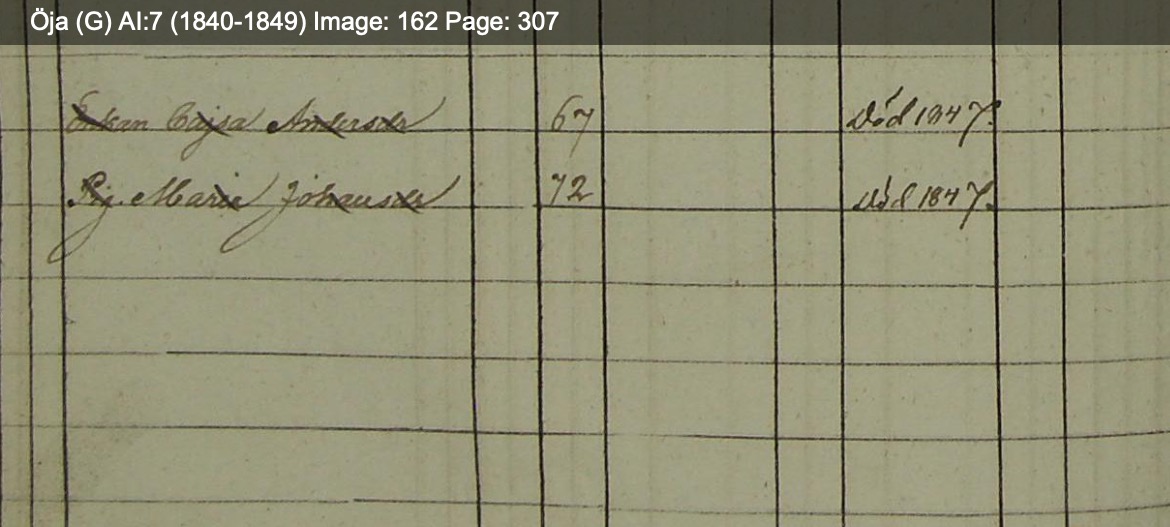 Öja (G) AI:7 (1840-1849) Image: 162 Page: 307
Enkan Cajsa Andersdr 67 Död 1847.
Pig. Marie Johansdr 72 Död 1847.